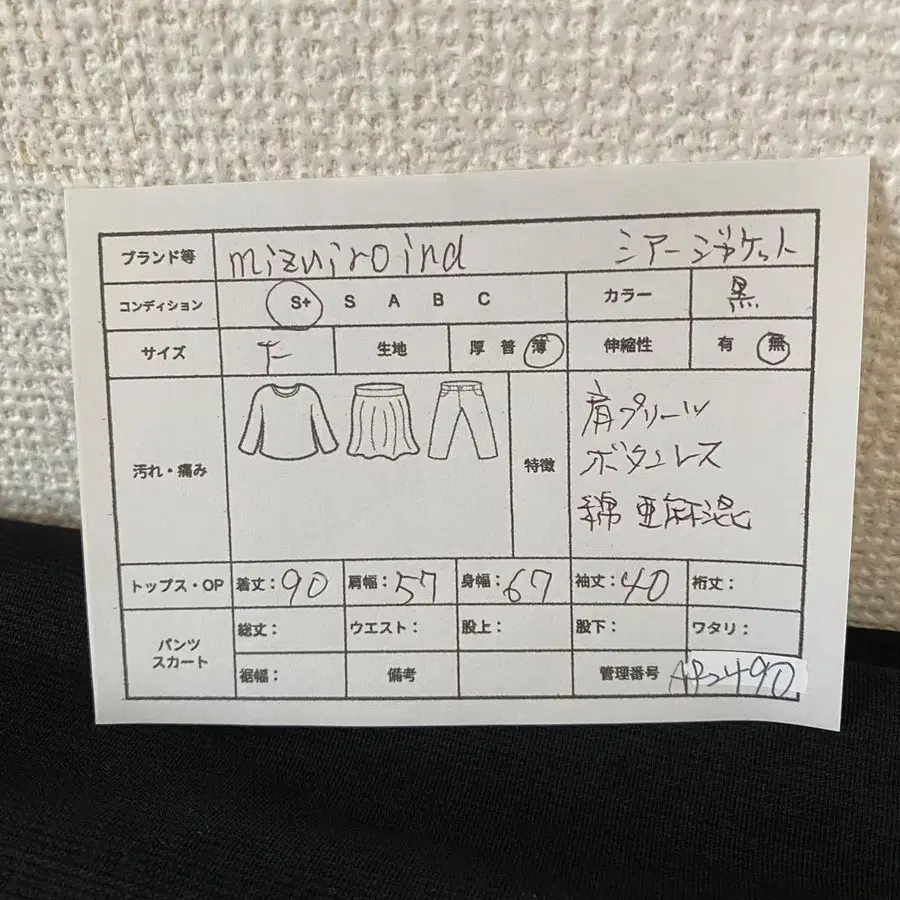 ブランド等 mizuiro ind シアージャケット
コンディション S+ S A B C カラー 黒
サイズ 生地 厚 普 薄 伸縮性 有 無
汚れ・痛み 特徴 肩プリーツ
ボタンレス
綿 亜麻混
トップス・OP 着丈：90 肩幅：57 身幅：67 袖丈：40 裄丈：
パンツ
スカート
総丈： ウエスト： 股上： 股下： ワタリ：
裾幅： 備考 管理番号